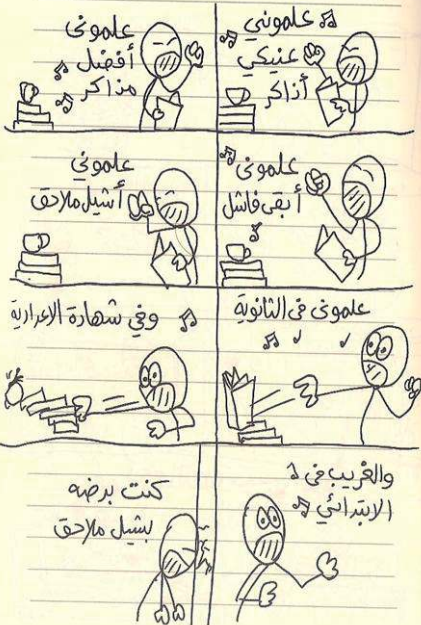 علموني
عنيكي
أذاكر
علموني
أفضل
مذاكر
علموني
أبقى فاشل
علموني
أشيل ملاحق
علموني في الثانوية
وفي شهادة الاعدادية
والغريب في
الابتدائي
كنت برضه
بشيل ملاحق